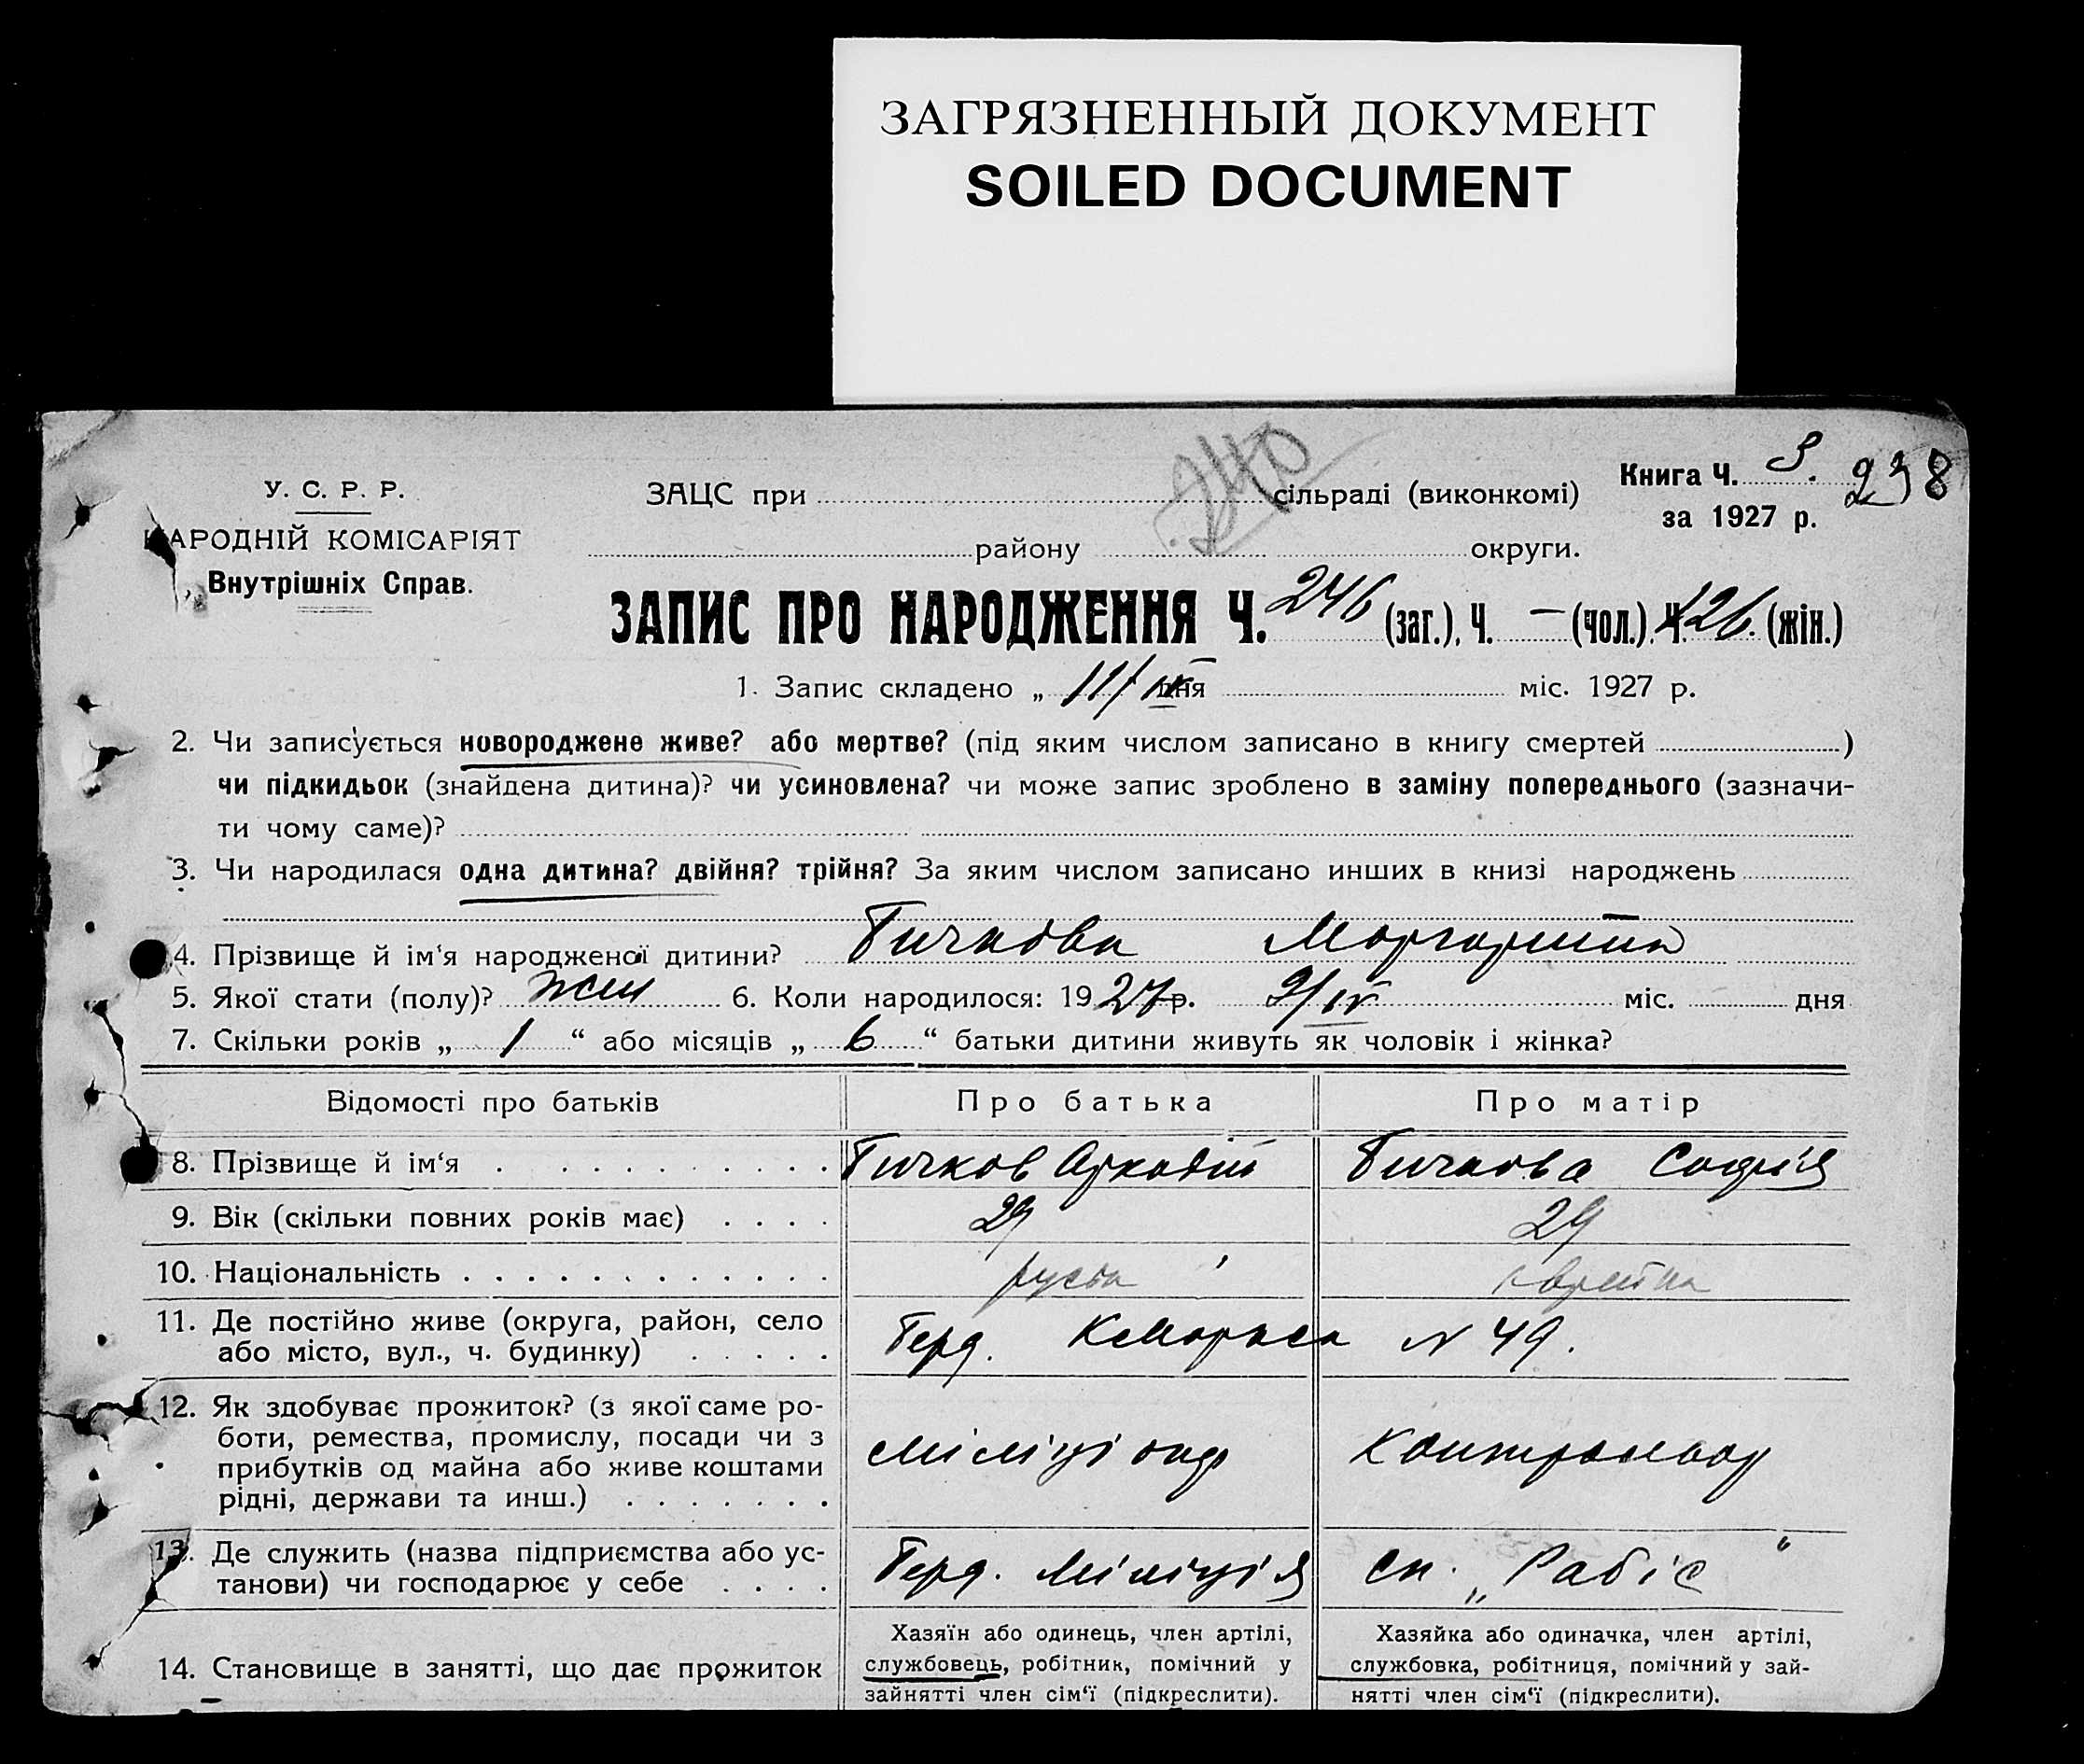 ЗАГРЯЗНЕННЫЙ ДОКУМЕНТ
SOILED DOCUMENT
240
Книга Ч. 3. 238
за 1927 р.
У. С. Р. Р.
НАРОДНІЙ КОМІСАРІЯТ
Внутрішніх Справ.
ЗАЦС при сільраді (виконкомі)
району округи.
ЗАПИС ПРО НАРОДЖЕННЯ Ч. 246 (заг.), Ч. — (чол.), Ч. 126. (жін.)
1. Запис складено „ 11/IV дня міс. 1927 р.
2. Чи записується новороджене живе? або мертве? (під яким числом записано в книгу смертей )
чи підкидьок (знайдена дитина)? чи усиновлена? чи може запис зроблено в заміну попереднього (зазначи-
ти чому саме)?
3. Чи народилася одна дитина? двійня? трійня? За яким числом записано инших в книзі народжень
—
4. Прізвище й ім‘я народженої дитини? Бичкова Маргарита
5. Якої стати (полу)? жін 6. Коли народилося: 1927 р. 9/IV міс. дня
7. Скільки років „ 1 “ або місяців „ 6 “ батьки дитини живуть як чоловік і жінка?
Відомості про батьків Про батька Про матір
8. Прізвище й ім‘я Бичков Аркадій Бичкова Софія
9. Вік (скільки повних років має) 29 29
10. Національність руськ єврейка
11. Де постійно живе (округа, район, село
або місто, вул., ч. будинку) Берд. К Маркса N 49.
12. Як здобуває прожиток? (з якої саме ро-
боти, ремества, промислу, посади чи з
прибутків од майна або живе коштами
рідні, держави та инш.) міліціонер Контрольор
13. Де служить (назва підприємства або ус-
танови) чи господарює у себе Берд. міліція сп. „Рабіс“
14. Становище в занятті, що дає прожиток
Хазяїн або одинець, член артілі,
службовець, робітник, помічний у
зайнятті член сім‘ї (підкреслити).
Хазяйка або одиначка, член артілі,
службовка, робітниця, помічний у зай-
нятті член сім‘ї (підкреслити).